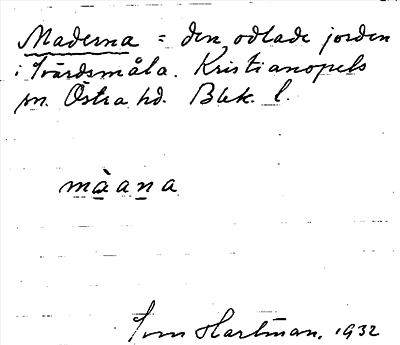 Maderna = den odlade jorden
i Tvärdsmåla. Kristianopels
sn. Östra hd. Blek. l.
màana
Tom Hartman. 1932